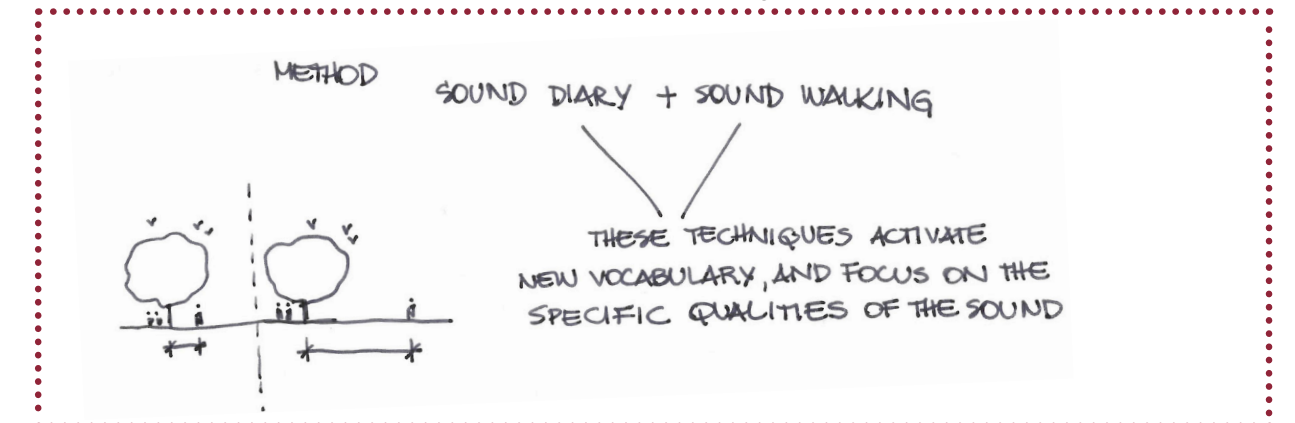 METHOD
SOUND DIARY + SOUND WALKING
THESE TECHNIQUES ACTIVATE
NEW VOCABULARY, AND FOCUS ON THE
SPECIFIC QUALITIES OF THE SOUND